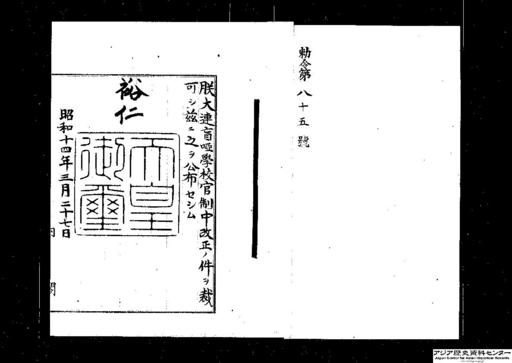 勅令第八十五號
朕大連盲啞學校官制中改正ノ件ヲ裁
可シ茲ニ之ヲ公布セシム
裕仁
天皇
御璽
昭和十四年三月二十七日
アジア歴史資料センター
Japan Center for Asian Historical Records